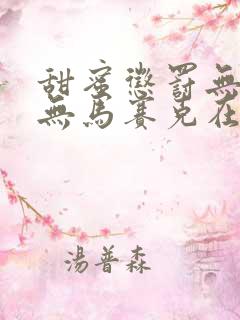 甜蜜懲罰無
無馬賽克在
湯普森